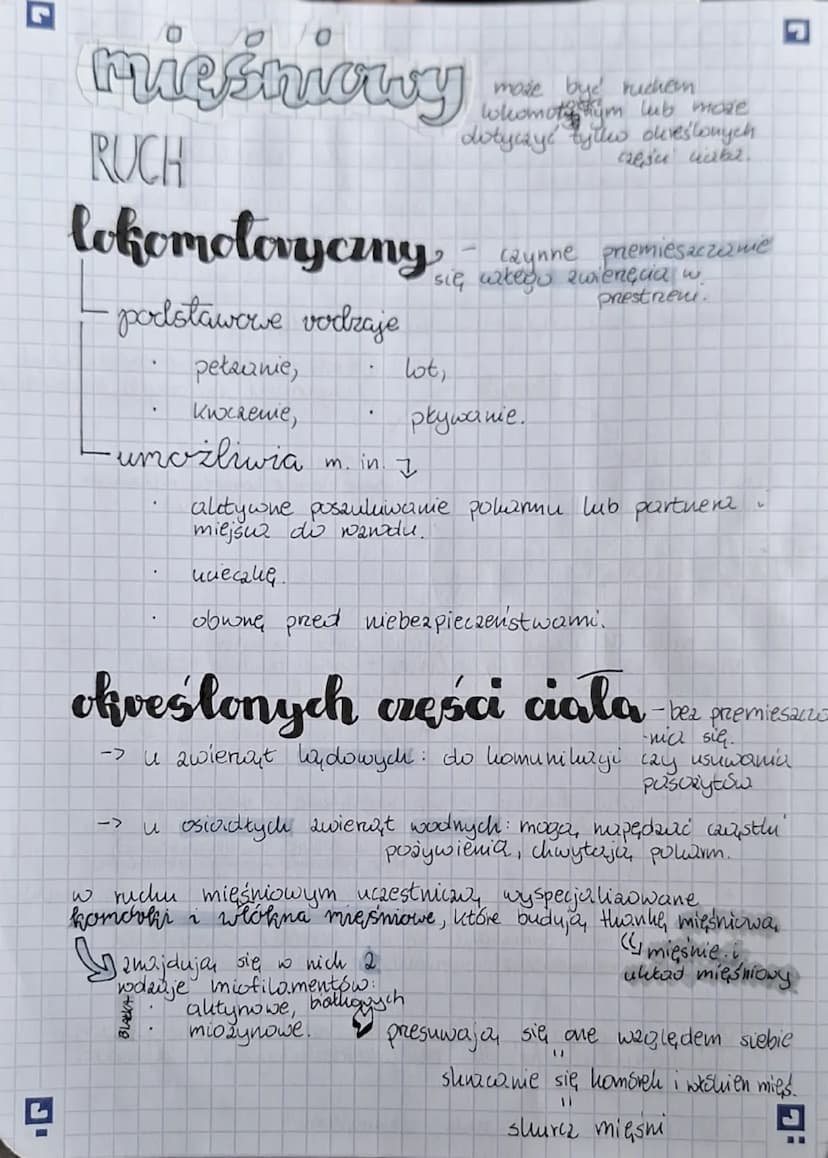 mięśniowy
może być ruchem
lokomotorycznym lub może
dotyczyć tylko określonych
części ciała.
RUCH
lokomotoryczny - czynne przemieszczanie
się całego zwierzęcia w
przestrzeni.
podstawowe rodzaje
· pełzanie, · lot,
· kroczenie, · pływanie.
umożliwia m. in. ↴
· aktywne poszukiwanie pokarmu lub partnera
miejsca do rozrodu.
· ucieczkę.
· obronę przed niebezpieczeństwami.
określonych części ciała - bez przemieszcza
-nia się.
-> u zwierząt lądowych: do komunikacji czy usuwania
pasożytów
-> u osiadłych zwierząt wodnych: mogą napędzać cząstki
pożywienia, chwytają pokarm.
w ruchu mięśniowym uczestniczą wyspecjalizowane
komórki i włókna mięśniowe, które budują tkankę mięśniową
mięśnie i
układ mięśniowy
znajdują się w nich 2
rodzaje miofilamentów: białkowych
BIAŁKA
· aktynowe,
· miozynowe.
presuwają się one względem siebie
"
skracanie się komórek i włókien mięś.
"
skurcz mięśni